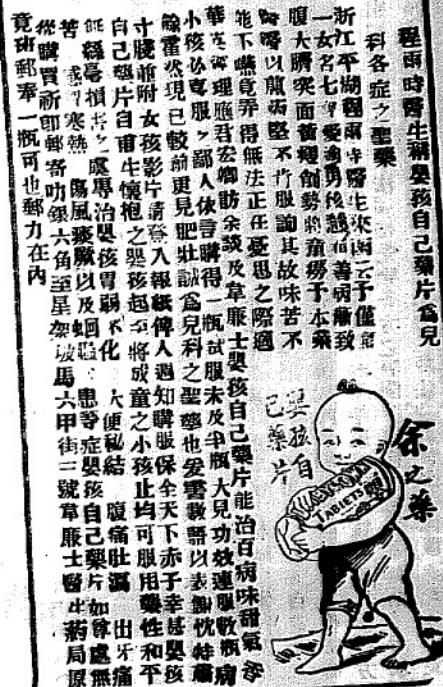 程雨時醫生稱嬰孩自己藥片為兒
科各症之聖藥
浙江平湖程雨時醫生來函云予僅育
一女名七愛逾男孩善病致
腹大臍突面黃削勢將癆予本藥
醫以病堅不肯服詢其故味苦不
能下嚥竟弄得無法正在憂思之際適
華理應君宏卿訪余談及韋廉士嬰孩自己藥片能治百病味甜氣香
小孩必喜服之鄙人依言購得一瓶試服未及半瓶大見功效連服數瓶病
霍然現已較前更見肥壯誠為兒科之聖藥也爰書數語以表謝忱茲
寸牋前附女孩影片請登入報紙俾人週知購服保全天下赤子幸甚嬰孩
自己藥片自甫生懷抱之嬰孩起至將成童之小孩止均可服用藥性和平
無絲毫損害之處專治嬰孩胃弱不化 大便秘結 腹痛肚瀉 出牙痛
苦 感冒寒熱 傷風痰厥以及蛔蟲患等症嬰孩自己藥片如尊處無
從購買祈即郵寄叻銀六角至星架坡馬六甲街三號韋廉士醫生藥局原
班郵奉一瓶可也郵力在內
余之藥
嬰孩自
己藥片
TABLETS